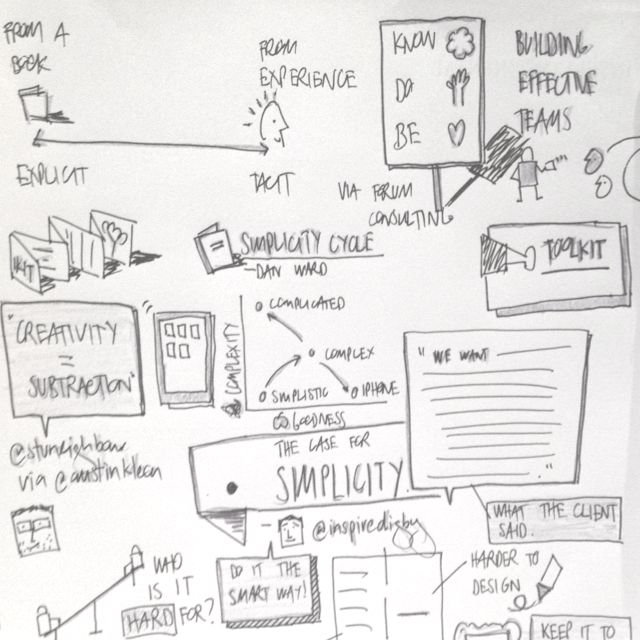 FROM A
BOOK
FROM
EXPERIENCE
EXPLICIT
TACIT
KNOW
DO
BE
VIA FORUM
CONSULTING
BUILDING
EFFECTIVE
TEAMS
KIT
SIMPLICITY CYCLE
- DAN WARD
TOOLKIT
"CREATIVITY
=
SUBTRACTION"
@stuneighbour
via @austinkleon
COMPLEXITY
COMPLICATED
COMPLEX
SIMPLISTIC
IPHONE
GOODNESS
"WE WANT
.."
WHAT THE CLIENT
SAID.
THE CASE FOR
SIMPLICITY
- @inspiredigby
WHO
IS IT
HARD FOR?
DO IT THE
SMART WAY!
HARDER TO
DESIGN
KEEP IT TO